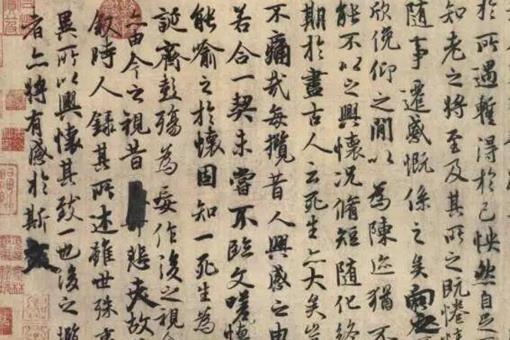 於所遇暫得於己怏然自足
知老之將至及其所之既惓情
隨事遷感慨係之矣向
欣俛仰之閒以為陳迹猶不
能不以之興懷況脩短隨化終
期於盡古人云死生亦大矣豈
不痛哉每攬昔人興感之由
若合一契未嘗不臨文嗟悼
能喻之於懷固知一死生為
誕齊彭殤為妄作後之視今
亦由今之視昔悲夫故
叙時人錄其所述雖世殊事
異所以興懷其致一也後之攬
者亦將有感於斯文